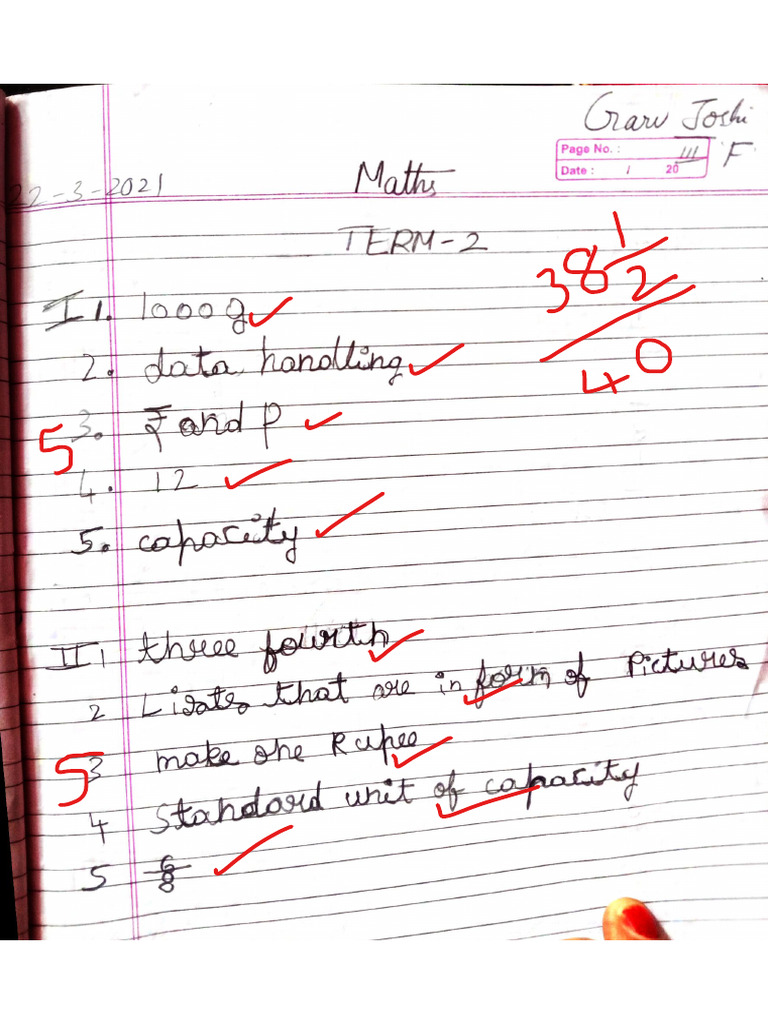 Garv Joshi
Page No.: III F
Date: 1 20
22-3-2021 Maths
TERM-2
38 1/2
40
I 1. 1000g
2. data handling
3. ₹ and P
5
4. 12
5. capacity
II 1 three fourth
2 that are in form of Pictures
3 make one Rupee
5
4 Standard unit of capacity
5 6/8